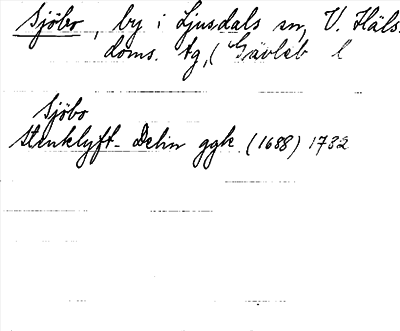 Sjöbo, by i Ljusdals sn, V. Häls.
doms. tg, (Gävleb l
Sjöbo
Stenklyft- Delin ggk. (1688) 1732